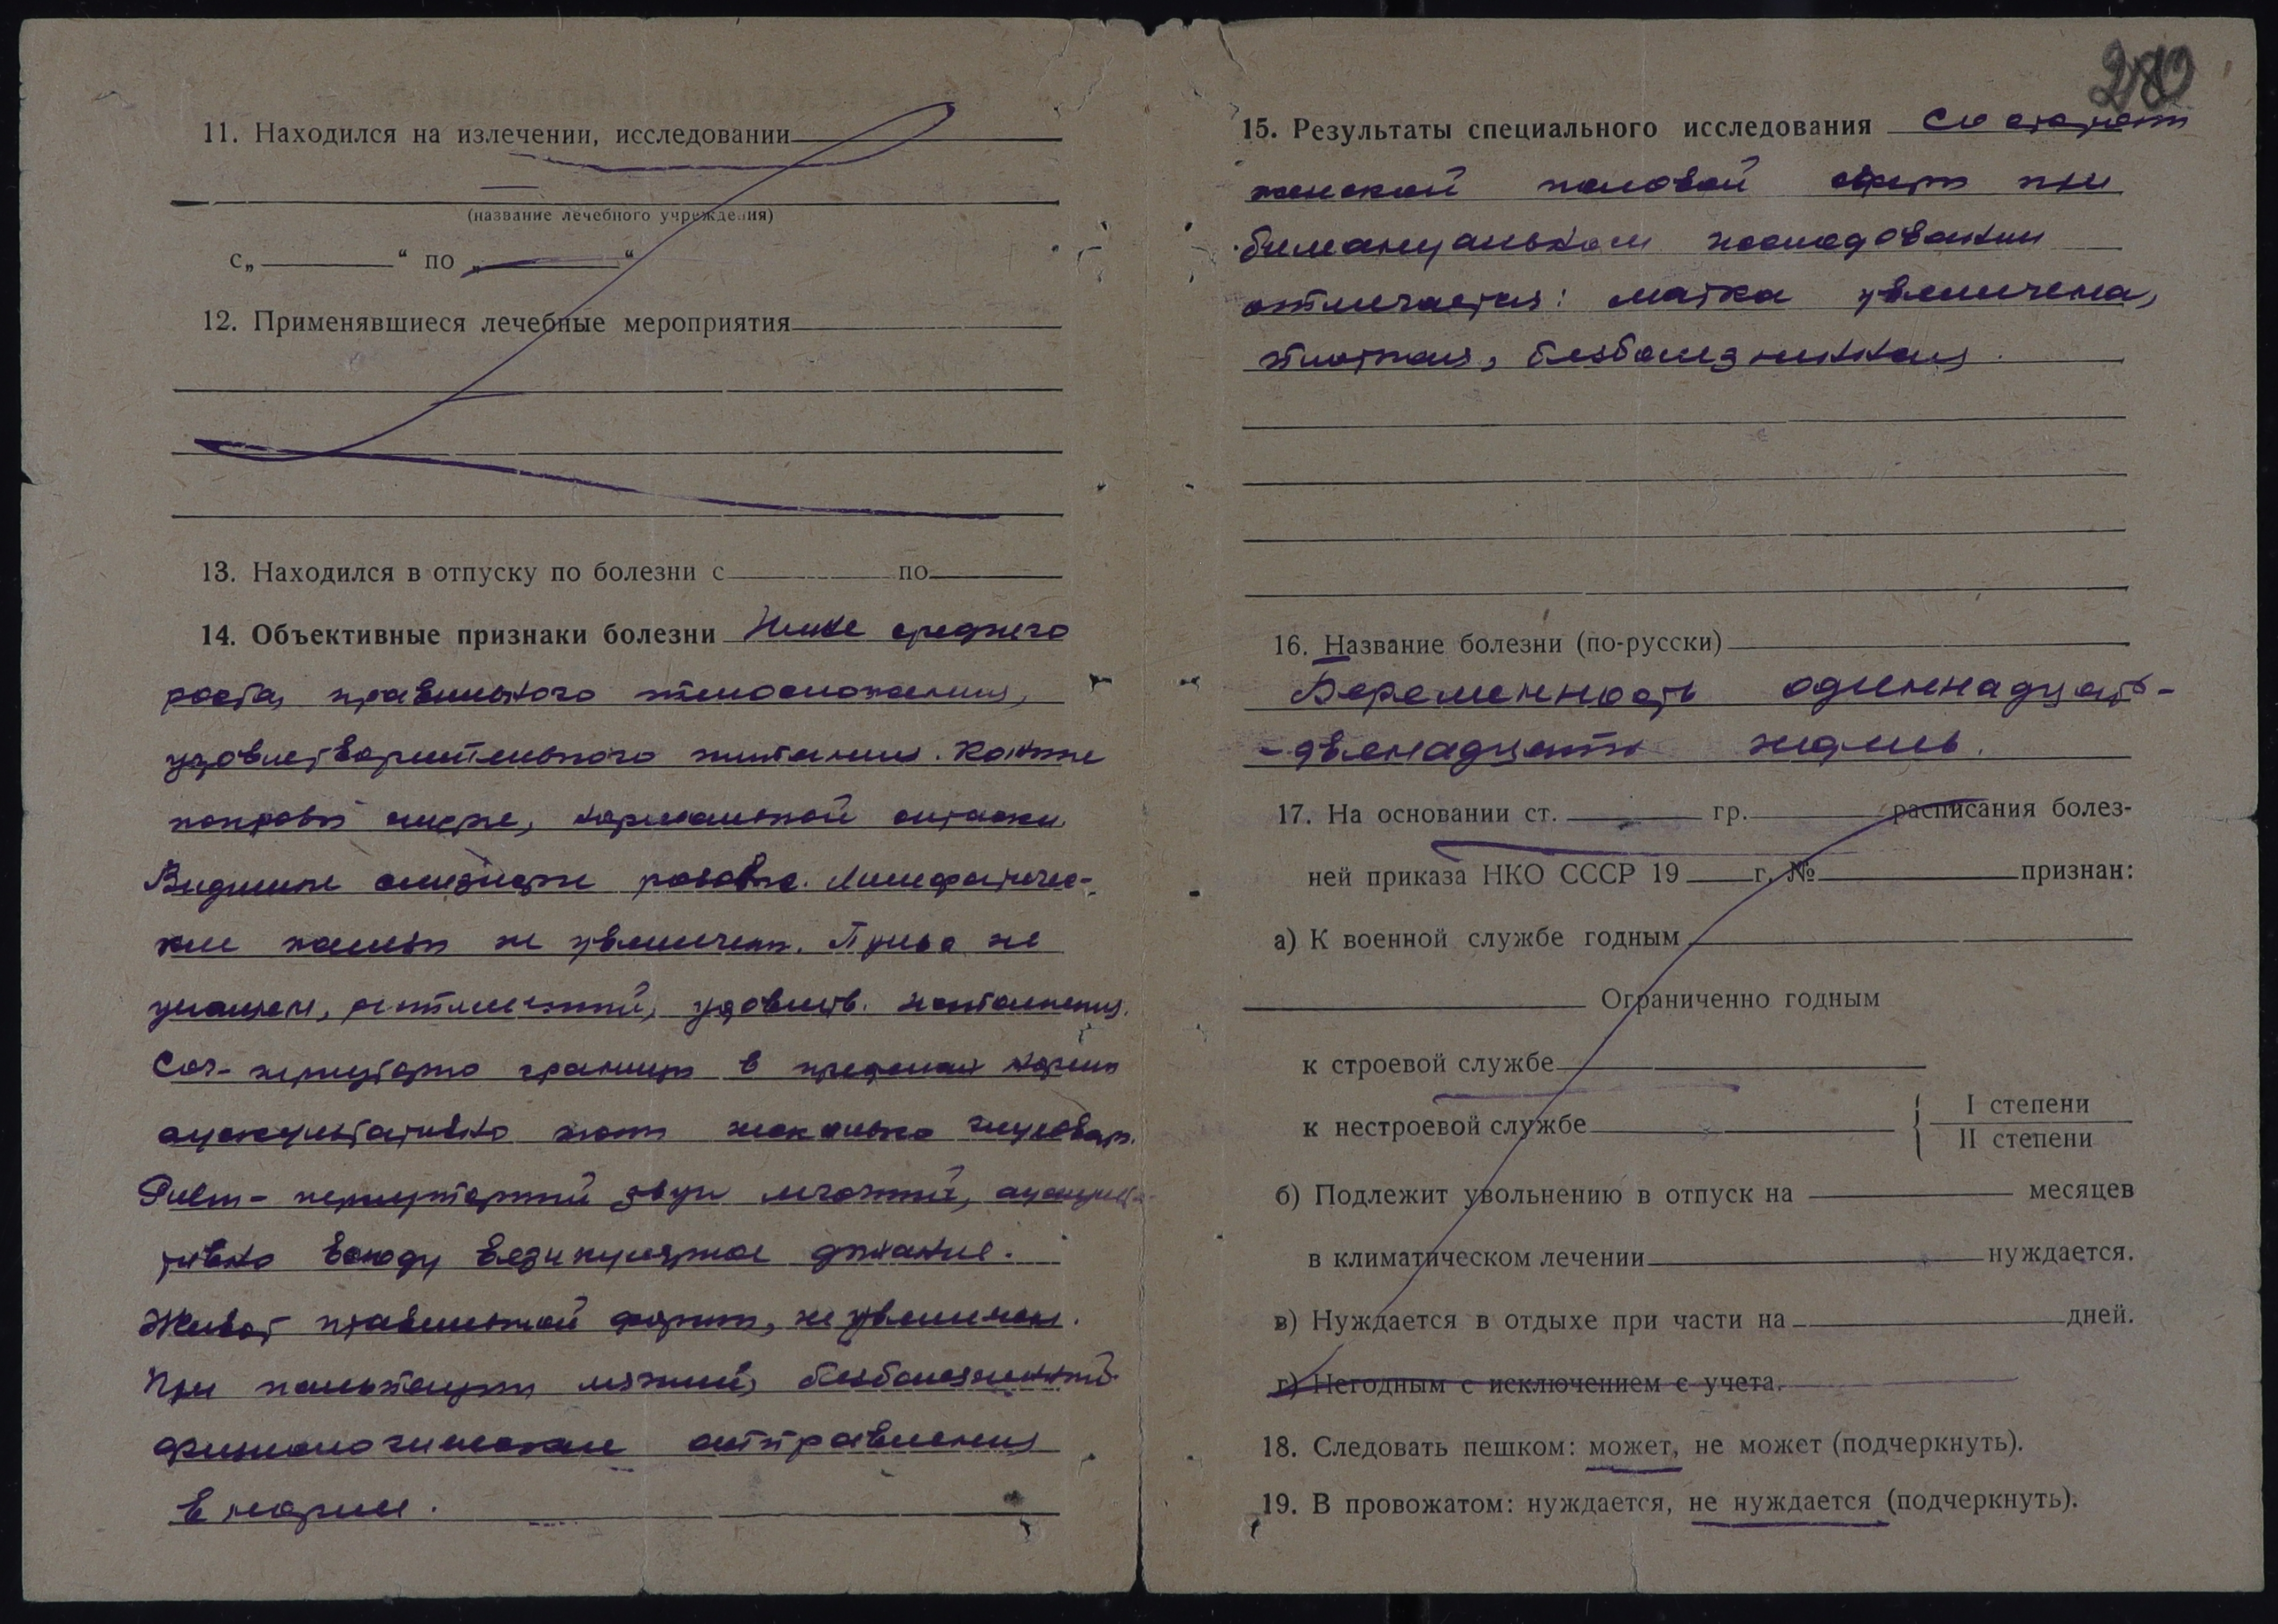 11. Находился на излечении, исследовании
(название лечебного учреждения)
с„ “ по „ “
12. Применявшиеся лечебные мероприятия
13. Находился в отпуску по болезни с по
14. Объективные признаки болезни Ниже среднего
роста, правильного телосложения,
удовлетворительного питания. Кожные
покровы нормальной окраски.
Видимые слизистые розовые. Лимфатичес-
кие железы не увеличены. Пульс не
учащен, ритмичный, удовлетв. наполнения.
Сог- перкуторно границы в пределах нормы
аускультативно тоны несколько глуховаты.
Pulm- перкуторный звук легочный, аускульта-
тивно всюду везикулярное дыхание.
Живот правильной формы, не увеличен.
При пальпации мягкий, безболезненный.
физиологические отправления
в норме.
280
15. Результаты специального исследования Со стороны
женской половой сферы при
бимануальном исследовании
отмечается: матка увеличена,
плотная, безболезненная.
16. Название болезни (по-русски)
Беременность одиннадцать-
-двенадцать недель.
17. На основании ст. гр. расписания болез-
ней приказа НКО СССР 19 г. № признан:
а) К военной службе годным
Ограниченно годным
к строевой службе
к нестроевой службе { I степени
II степени
б) Подлежит увольнению в отпуск на месяцев
в климатическом лечении нуждается.
в) Нуждается в отдыхе при части на дней.
г) Негодным с исключением с учета.
18. Следовать пешком: может, не может (подчеркнуть).
19. В провожатом: нуждается, не нуждается (подчеркнуть).